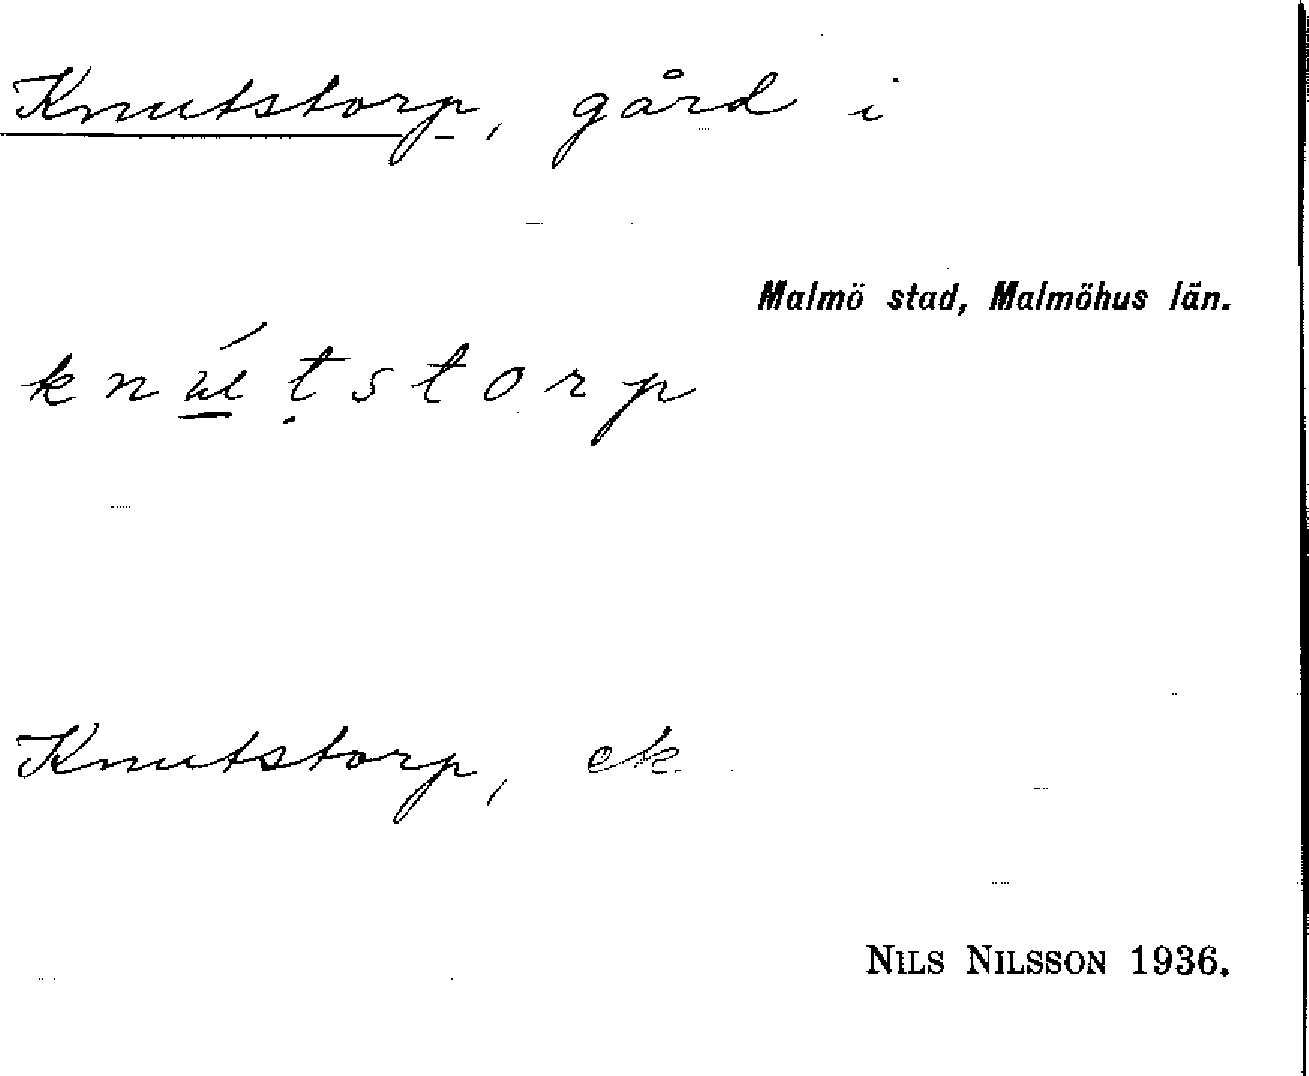 Knutstorp, gård i
Malmö stad, Malmöhus län.
knú̱ṭstorp
Knutstorp, ek.
NILS NILSSON 1936.